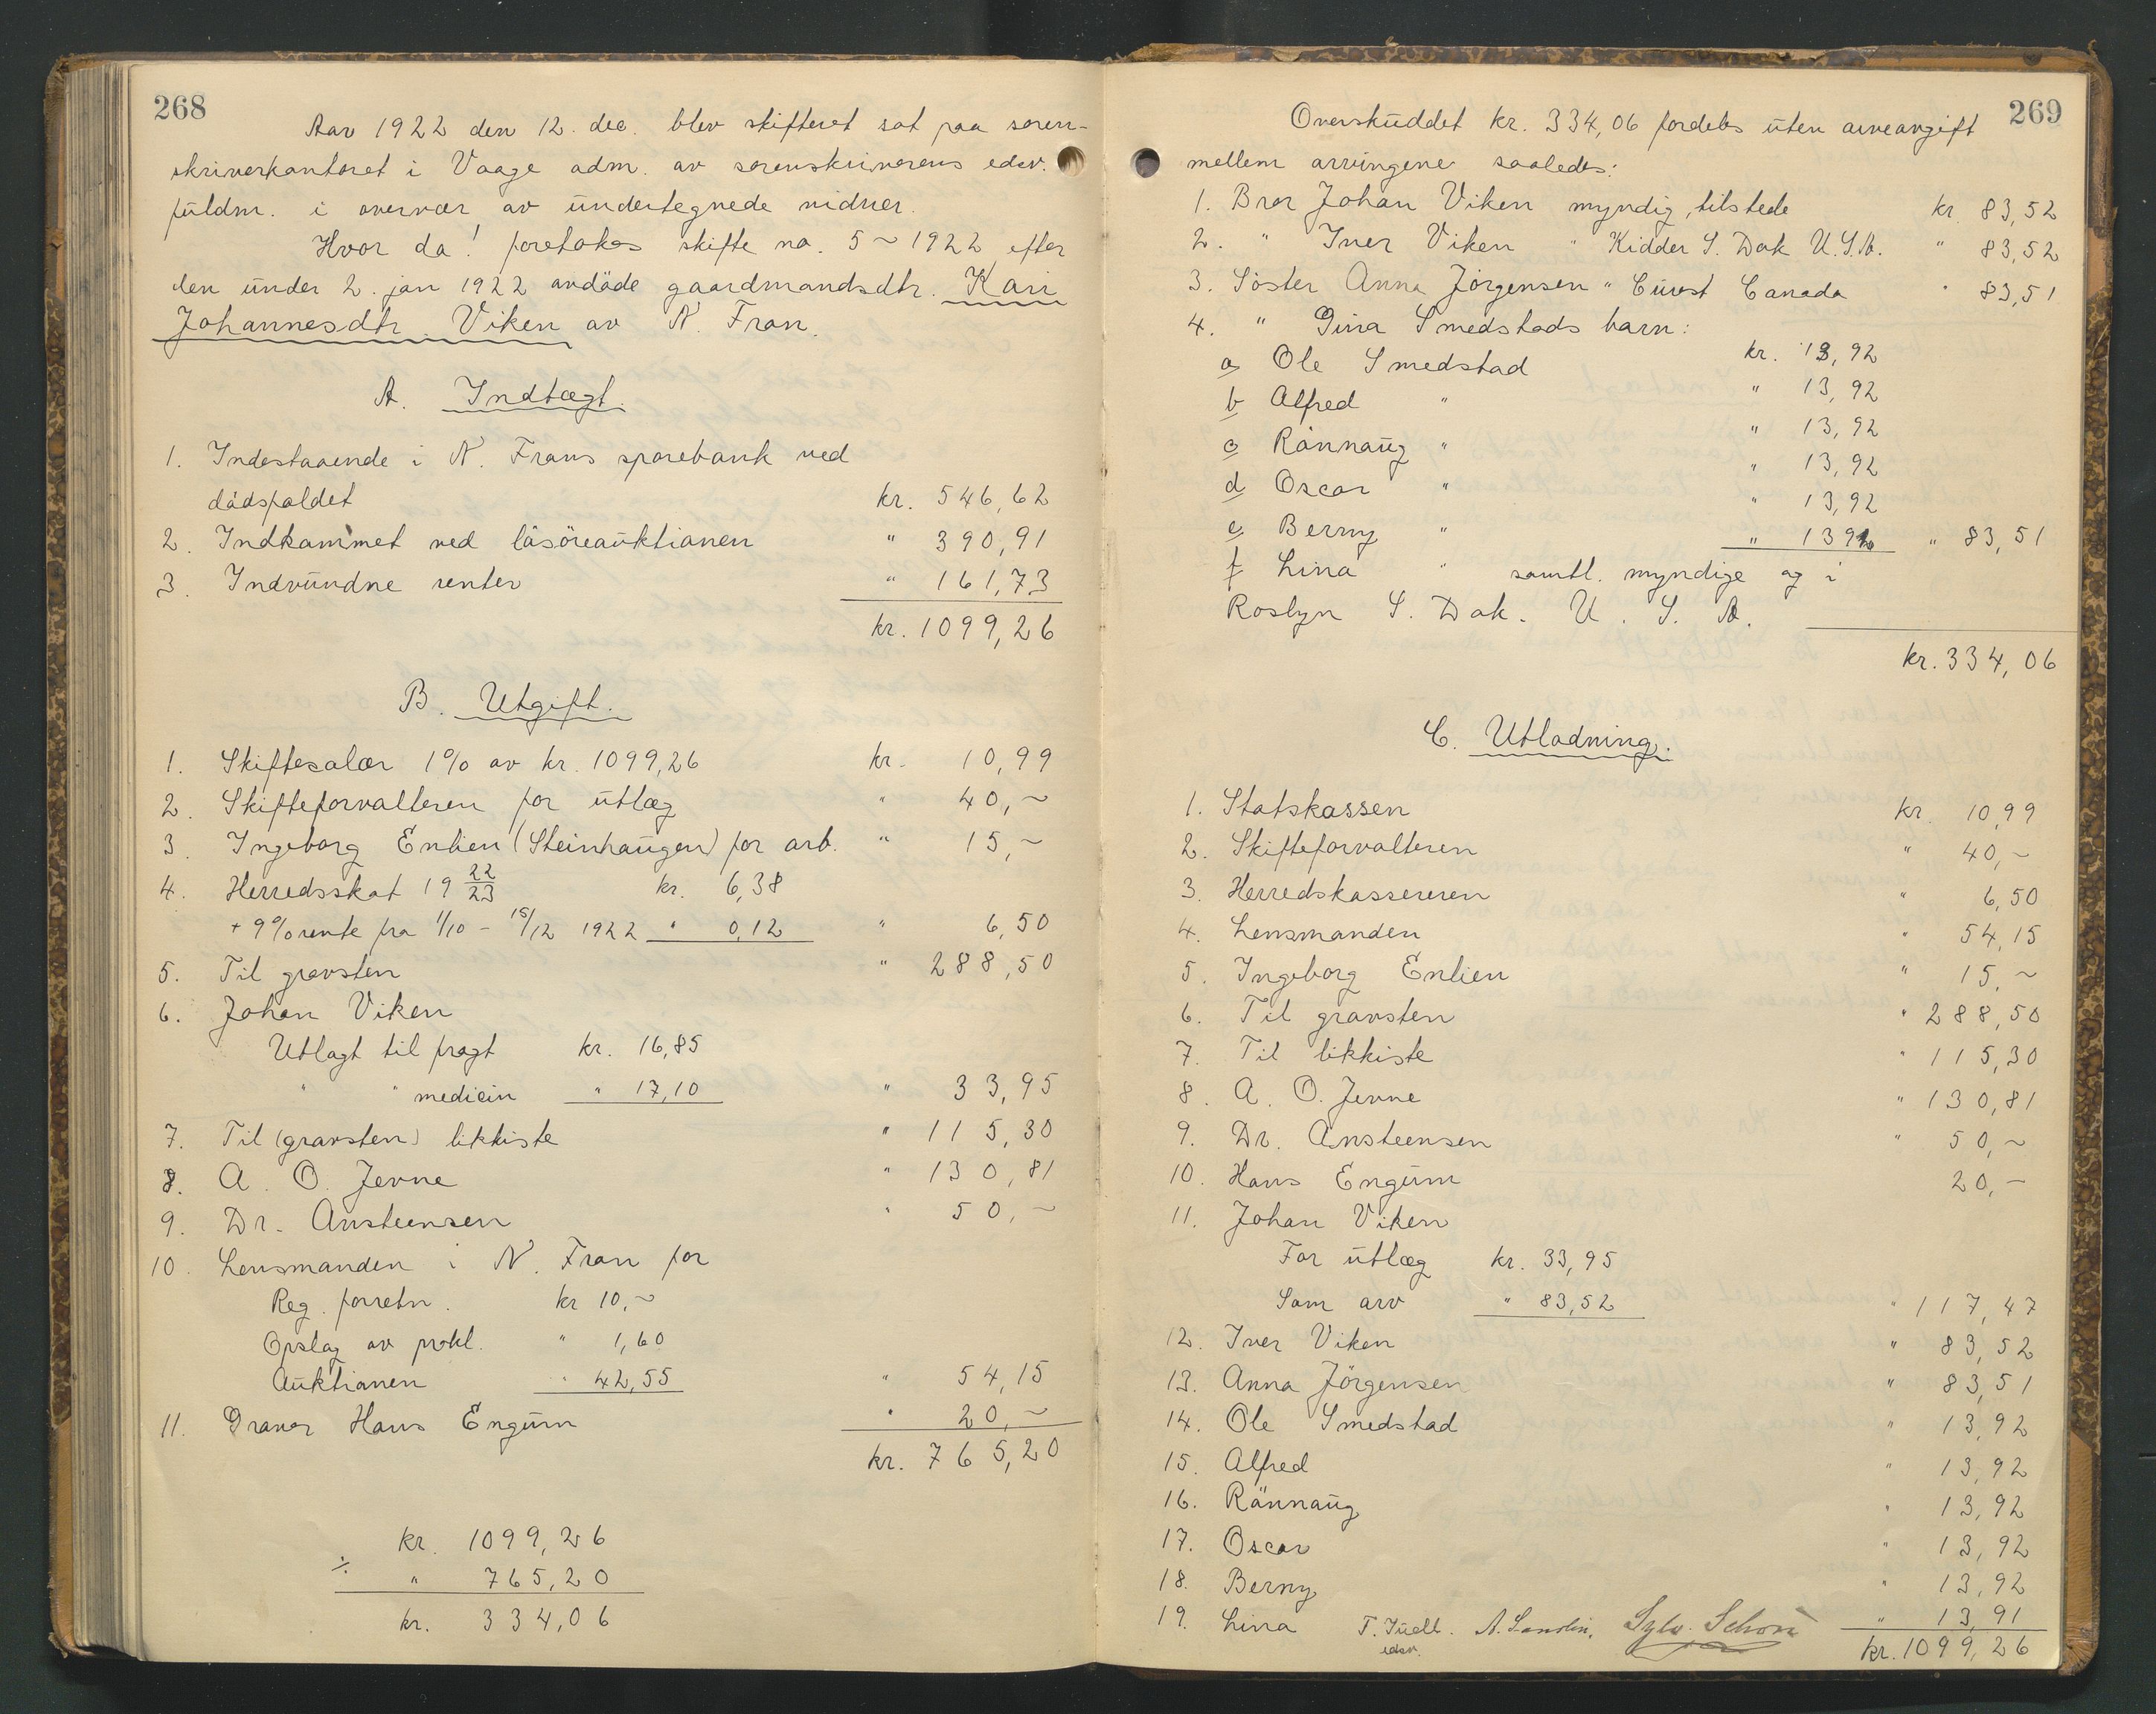 268
Aar 1922 den 12. dec. blev skifteret sat paa soren-
skriverkontoret i Vaage adm. av sorenskriverens edsv.
fuldm. i overvær av undertegnede vidner.
Hvor da! foretokes skifte no. 5 ~ 1922 efter
den under 2. jan 1922 avdöde gaardmandsdtr. Kari
Johannesdtr. Viken av N. Fron.
A. Indtægt.
1. Indestaaende i N. Frons sparebank ved
dödsfaldet kr. 546,62
2. Indkommet ved lösöreauktionen " 390,91
3. Indvundne renter " 161,73
kr. 1099,26
B. Utgift.
1. Skiftesalær 1% av kr. 1099,26 kr. 10,99
2. Skifteforvalteren for utlæg " 40,~
3. Ingeborg Enlien (Steinhaugen) for arb. " 15,~
4. Herredsskat 19 22/23 kr. 6,38
+ 9% rente fra 1/10 - 15/12 1922 " 0,12 " 6,50
5. Til gravsten " 288,50
6. Johan Viken
Utlagt til fragt kr. 16,85
" " medicin " 17,10 " 33,95
7. Til (gravsten) likkiste " 115,30
8. A. O. Jevne " 130,81
9. Dr. Ansteensen " 50,~
10. Lensmanden i N. Fron for
Reg. forretn. kr 10,~
Opslag av prokl. " 1,60
Auktionen " 42,55 " 54,15
11. Graver Hans Engum " 20,~
kr. 765,20
kr. 1099,26
÷ " 765,20
kr. 334,06
269
Overskuddet kr. 334,06 fordeles uten arveavgift
mellem arvingene saaledes:
1. Bror Johan Viken myndig, tilstede kr. 83,52
2. " Iver Viken " Kidder S. Dak U.S.A. " 83,52
3. Söster Anna Jörgensen " Canada " 83,51
4. " Gina Smedstads barn:
a Ole Smedstad kr. 13,92
b Alfred " " 13,92
c Rönnaug " " 13,92
d Oscar " " 13,92
e Berny " " 13,92
f Lina " samtl. myndige og i " 13 91 " 83,51
Roslyn S. Dak. U. S. A.
kr. 334,06
C. Utlodning.
1. Statskassen kr. 10,99
2. Skifteforvalteren " 40,~
3. Herredskassereren " 6,50
4. Lensmanden " 54,15
5. Ingeborg Enlien " 15,~
6. Til gravsten " 288,50
7. Til likkiste " 115,30
8. A. O. Jevne " 130,81
9. Dr. Ansteensen " 50,~
10. Hans Engum 20,-
11. Johan Viken
For utlæg kr. 33,95
Som arv " 83,52 " 117,47
12. Iver Viken " 83,52
13. Anna Jörgensen " 83,51
14. Ole Smedstad " 13,92
15. Alfred " 13,92
16. Rönnaug " 13,92
17. Oscar " 13,92
18. Berny " 13,92
19. Lina " 13,91
T. Juell. A. Sandin. Sylv. Schou
edsv.
kr. 1099,26